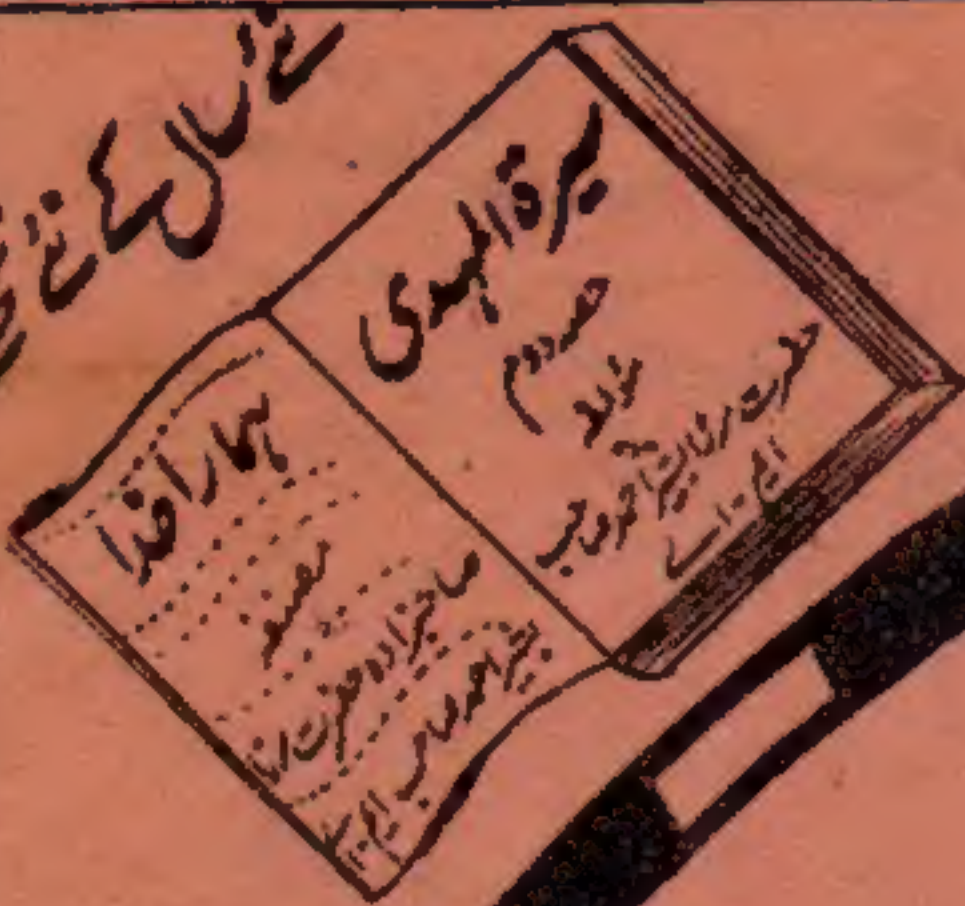 سال کے نئے
سیرۃ المہدی
حصہ دوم
مؤلفہ
حضرت مرزا بشیر احمد صاحب
ایم۔اے
ہمارا خدا
مصنفہ
صاحبزادہ حضرت مرزا
بشیر احمد صاحب ایم۔اے